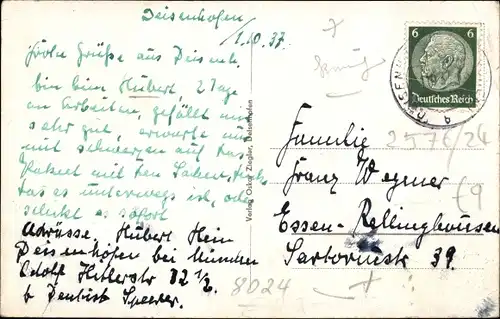 Deisenhofen
1.10.37.
frohe Grüße aus Deisenh.
bin beim Hubert, 2 Tage
am Arbeiten, gefällt mir
sehr gut, erwarte nun
mit schmerzen auf das
Paket mit den Saden,
das es unterwegs ist,
schickt es sofort
Adrüsse. Hubert Hein
Deisenhofen bei München
Adolf Hitlerstr 12 1/2
b Dentist Speerer.
Verlag Oskar Ziegler, Deisenhofen
6 6
Deutsches Reich
Familie
2576/24
Franz Wegner
£9
Essen-Rellinghausen
Sartoriusstr 39.
8024